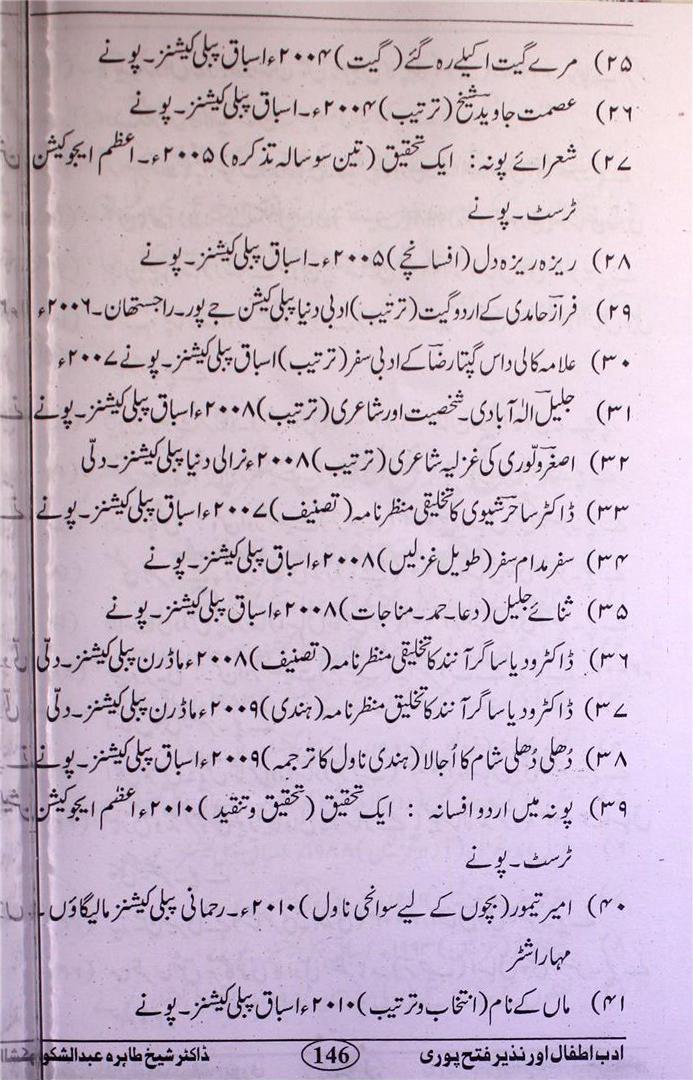 ۲۵) مرے گیت اکیلے رہ گئے (گیت) ۲۰۰۴ء اسباق پبلی کیشنز۔ پونے
۲۶) عصمت جاوید شیخ (ترتیب) ۲۰۰۴ء۔ اسباق پبلی کیشنز۔ پونے
۲۷) شعرائے پونہ: ایک تحقیق (تین سو سالہ تذکرہ) ۲۰۰۵ء۔ اعظم ایجوکیشن
ٹرسٹ۔ پونے
۲۸) ریزہ ریزہ دل (افسانچے) ۲۰۰۵ء۔ اسباق پبلی کیشنز۔ پونے
۲۹) فرازؔ حامدی کے اردو گیت (ترتیب) ادبی دنیا پبلی کیشن جے پور۔ راجستھان۔ ۲۰۰۶ء
۳۰) علامہ کالی داس گپتا رضاؔ کے ادبی سفر (ترتیب) اسباق پبلی کیشنز۔ پونے ۲۰۰۷ء
۳۱) جلیلؔ الہٰ آبادی۔ شخصیت اور شاعری (ترتیب) ۲۰۰۸ء اسباق پبلی کیشنز۔ پونے
۳۲) اصغرؔ ولّوری کی غزلیہ شاعری (ترتیب) ۲۰۰۸ء نرالی دنیا پبلی کیشنز۔ دلّی
۳۳) ڈاکٹر ساحرؔ شیوی کا تخلیقی منظر نامہ (تصنیف) ۲۰۰۷ء اسباق پبلی کیشنز۔ پونے
۳۴) سفر مدام سفر (طویل غزلیں) ۲۰۰۸ء اسباق پبلی کیشنز۔ پونے
۳۵) ثنائے جلیل (دعا۔ حمد۔ مناجات) ۲۰۰۸ء اسباق پبلی کیشنز۔ پونے
۳۶) ڈاکٹر ودیا ساگر آنند کا تخلیقی منظر نامہ (تصنیف) ۲۰۰۸ء ماڈرن پبلی کیشنز۔ دلّی
۳۷) ڈاکٹر ودیا ساگر آنند کا تخلیق منظر نامہ (ہندی) ۲۰۰۹ء ماڈرن پبلی کیشنز۔ دلّی
۳۸) دُھلی دُھلی شام کا اُجالا (ہندی ناول کا ترجمہ) ۲۰۰۹ء اسباق پبلی کیشنز۔ پونے
۳۹) پونہ میں اردو افسانہ : ایک تحقیق (تحقیق و تنقید) ۲۰۱۰ء اعظم ایجوکیشن
ٹرسٹ۔ پونے
۴۰) امیر تیمور (بچوں کے لیے سوانحی ناول) ۲۰۱۰ء۔ رحمانی پبلی کیشنز مالیگاؤں۔
مہاراشٹر
۴۱) ماں کے نام (انتخاب و ترتیب) ۲۰۱۰ء اسباق پبلی کیشنز۔ پونے
ادب اطفال اور نذیر فتح پوری 146 ڈاکٹر شیخ طاہرہ عبدالشکور